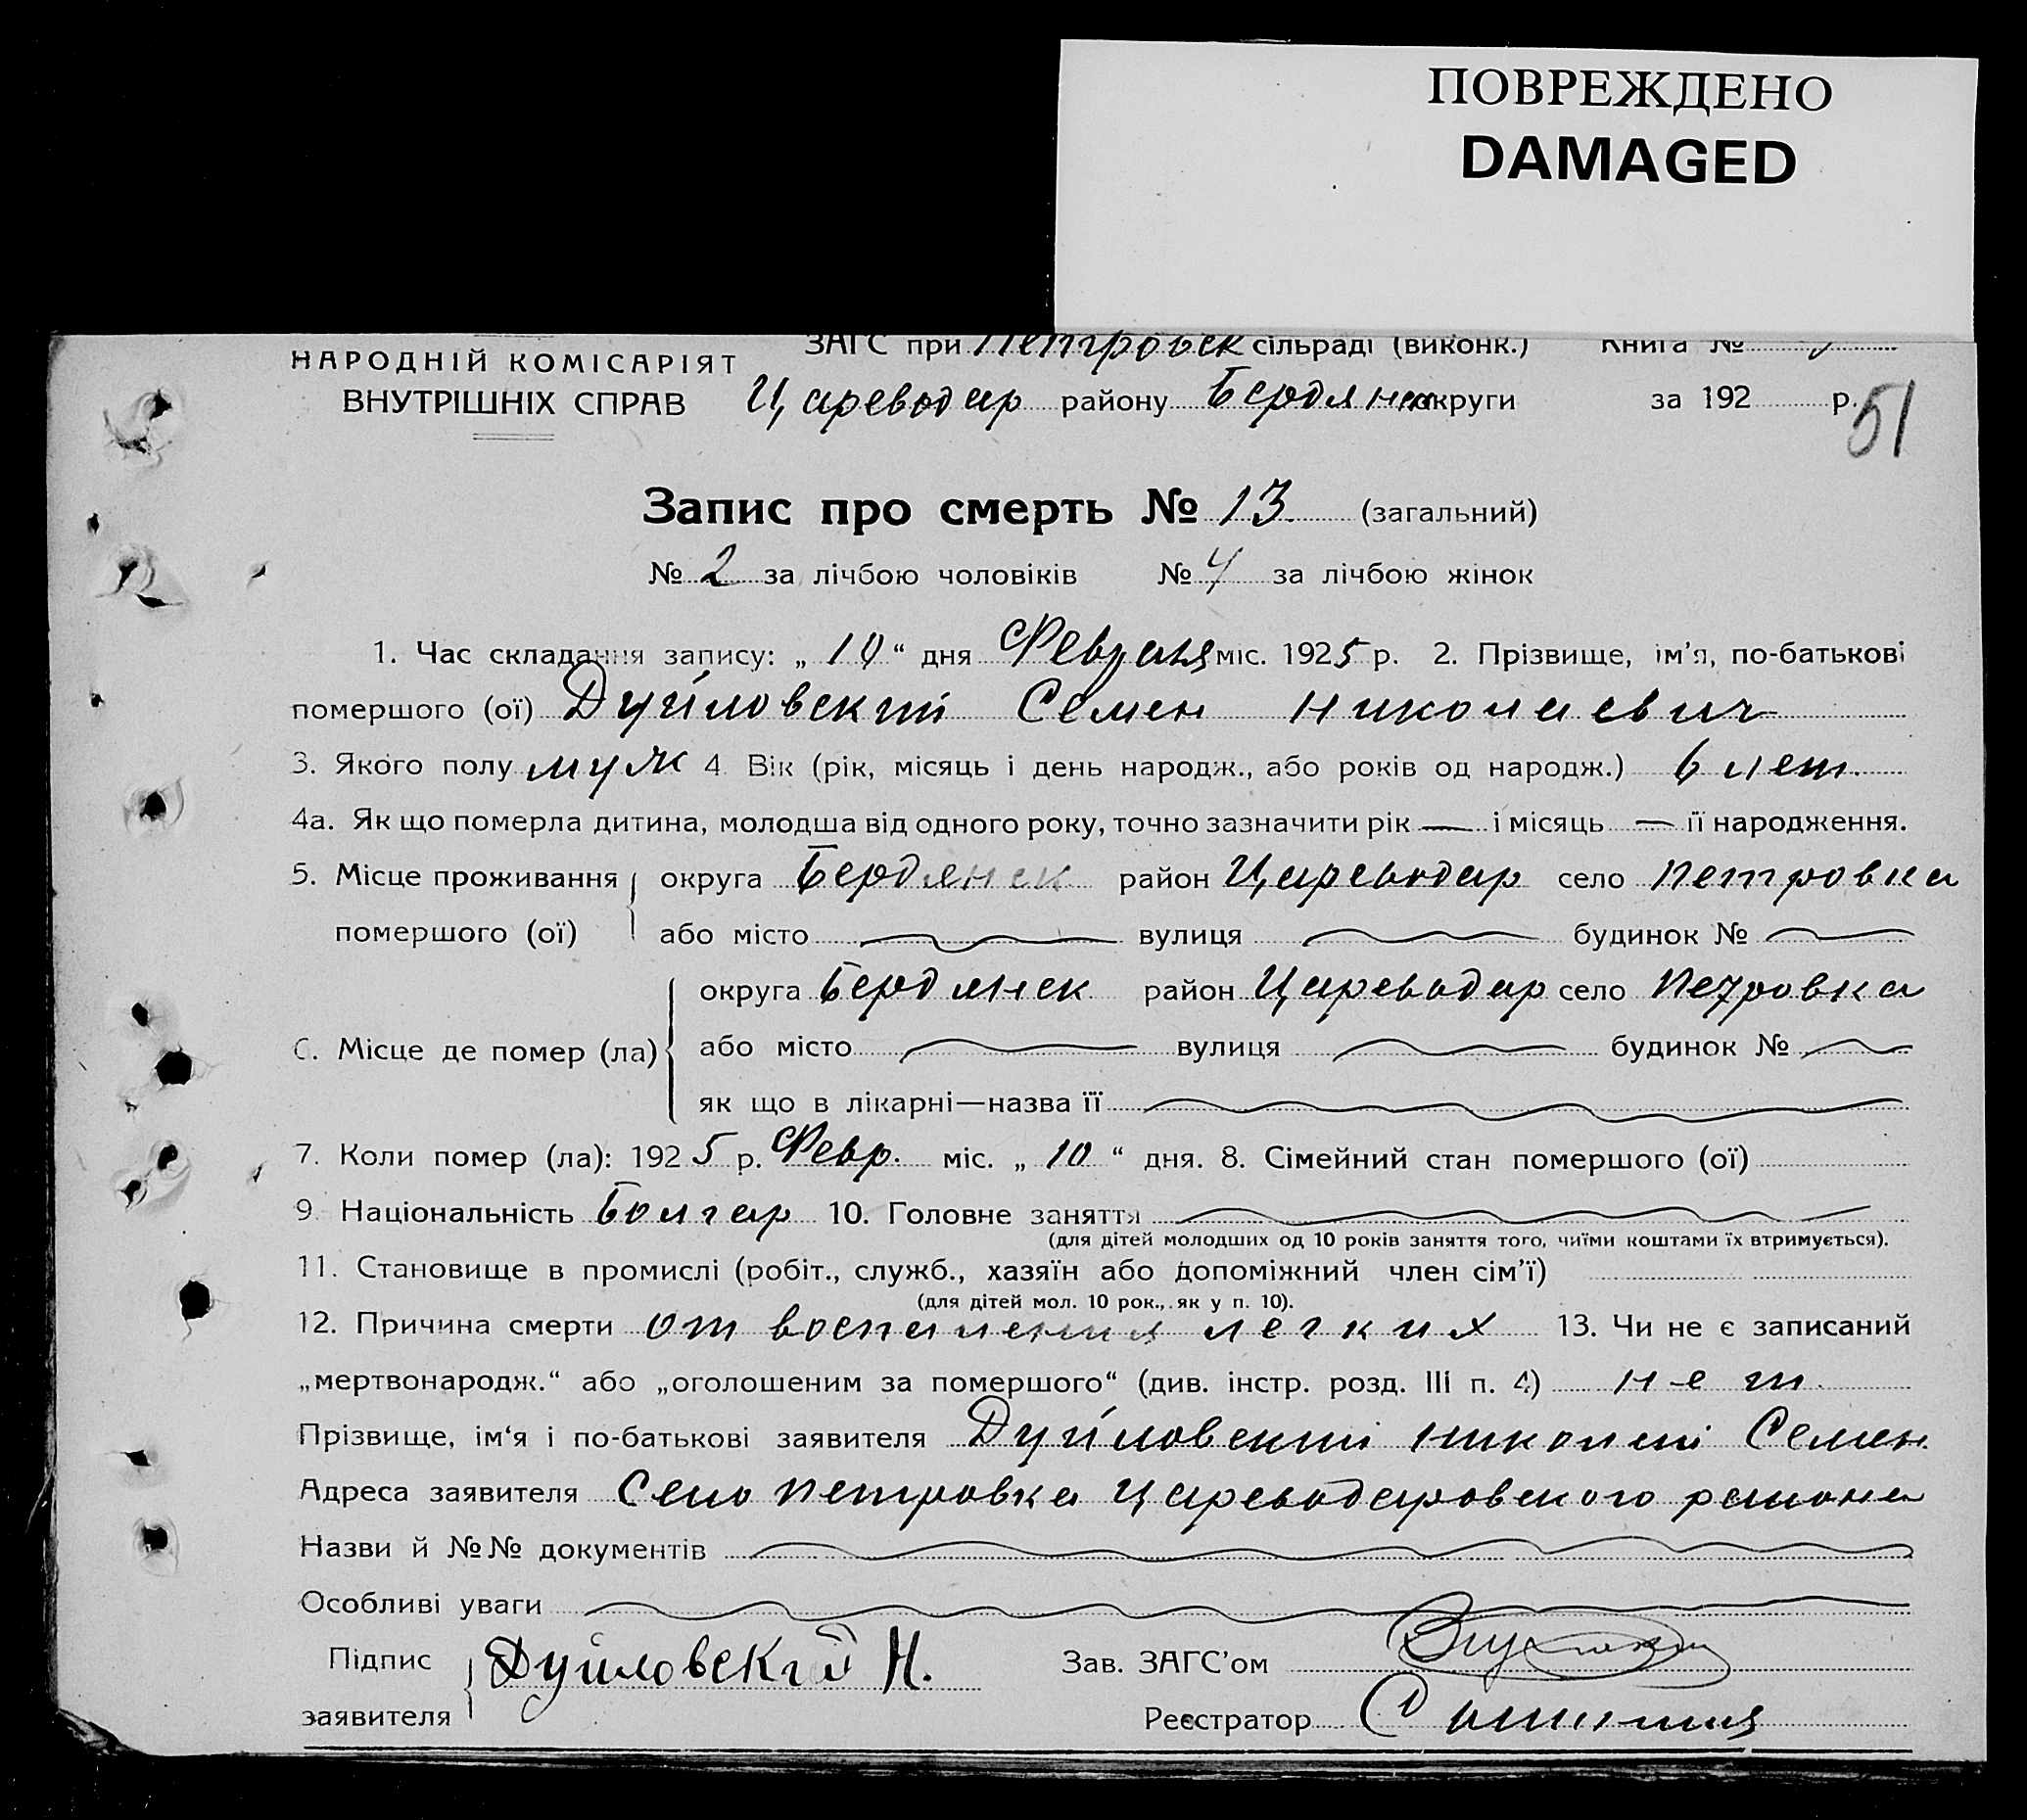 ПОВРЕЖДЕНО
DAMAGED
НАРОДНІЙ КОМІСАРІЯТ
ВНУТРІШНІХ СПРАВ
ЗАГС при Петровск сільраді (виконк.) Книга №
Цареводар району Бердянск округи за 192 р.
51
Запис про смерть № 13 (загальний)
№ 2 за лічбою чоловіків № 4 за лічбою жінок
1. Час складання запису: „ 10 “ дня Февраля міс. 1925 р. 2. Прізвище, ім'я, по-батькові
помершого (ої) Дуйловский Семен Николаевич
3. Якого полу муж 4 Вік (рік, місяць і день народж., або років од народж.) 6 лет.
4а. Як що померла дитина, молодша від одного року, точно зазначити рік — і місяць — її народження.
5. Місце проживання округа Бердянск район Цареводар село Петровка
помершого (ої) або місто вулиця будинок №
округа Бердянск район Цареводар село Петровка
6. Місце де помер (ла) або місто вулиця будинок №
як що в лікарні—назва її
7. Коли помер (ла): 1925 р. Февр. міс. „ 10 “ дня. 8. Сімейний стан помершого (ої)
9. Національність Болгар 10. Головне заняття
(для дітей молодших од 10 років заняття того, чиїми коштами їх втримується).
11. Становище в промислі (робіт., служб., хазяїн або допоміжний член сім'ї)
(для дітей мол. 10 рок., як у п. 10).
12. Причина смерти от воспаления легких 13. Чи не є записаний
„мертвонародж.“ або „оголошеним за помершого“ (див. інстр. розд. III п. 4) нет.
Прізвище, ім‘я і по-батькові заявителя Дуйловский Николай Семен.
Адреса заявителя Село Петровка Цареводаровского района
Назви й №№ документів
Особливі уваги
Підпис Дуйловский Н. Зав. ЗАГС'ом
заявителя Реєстратор